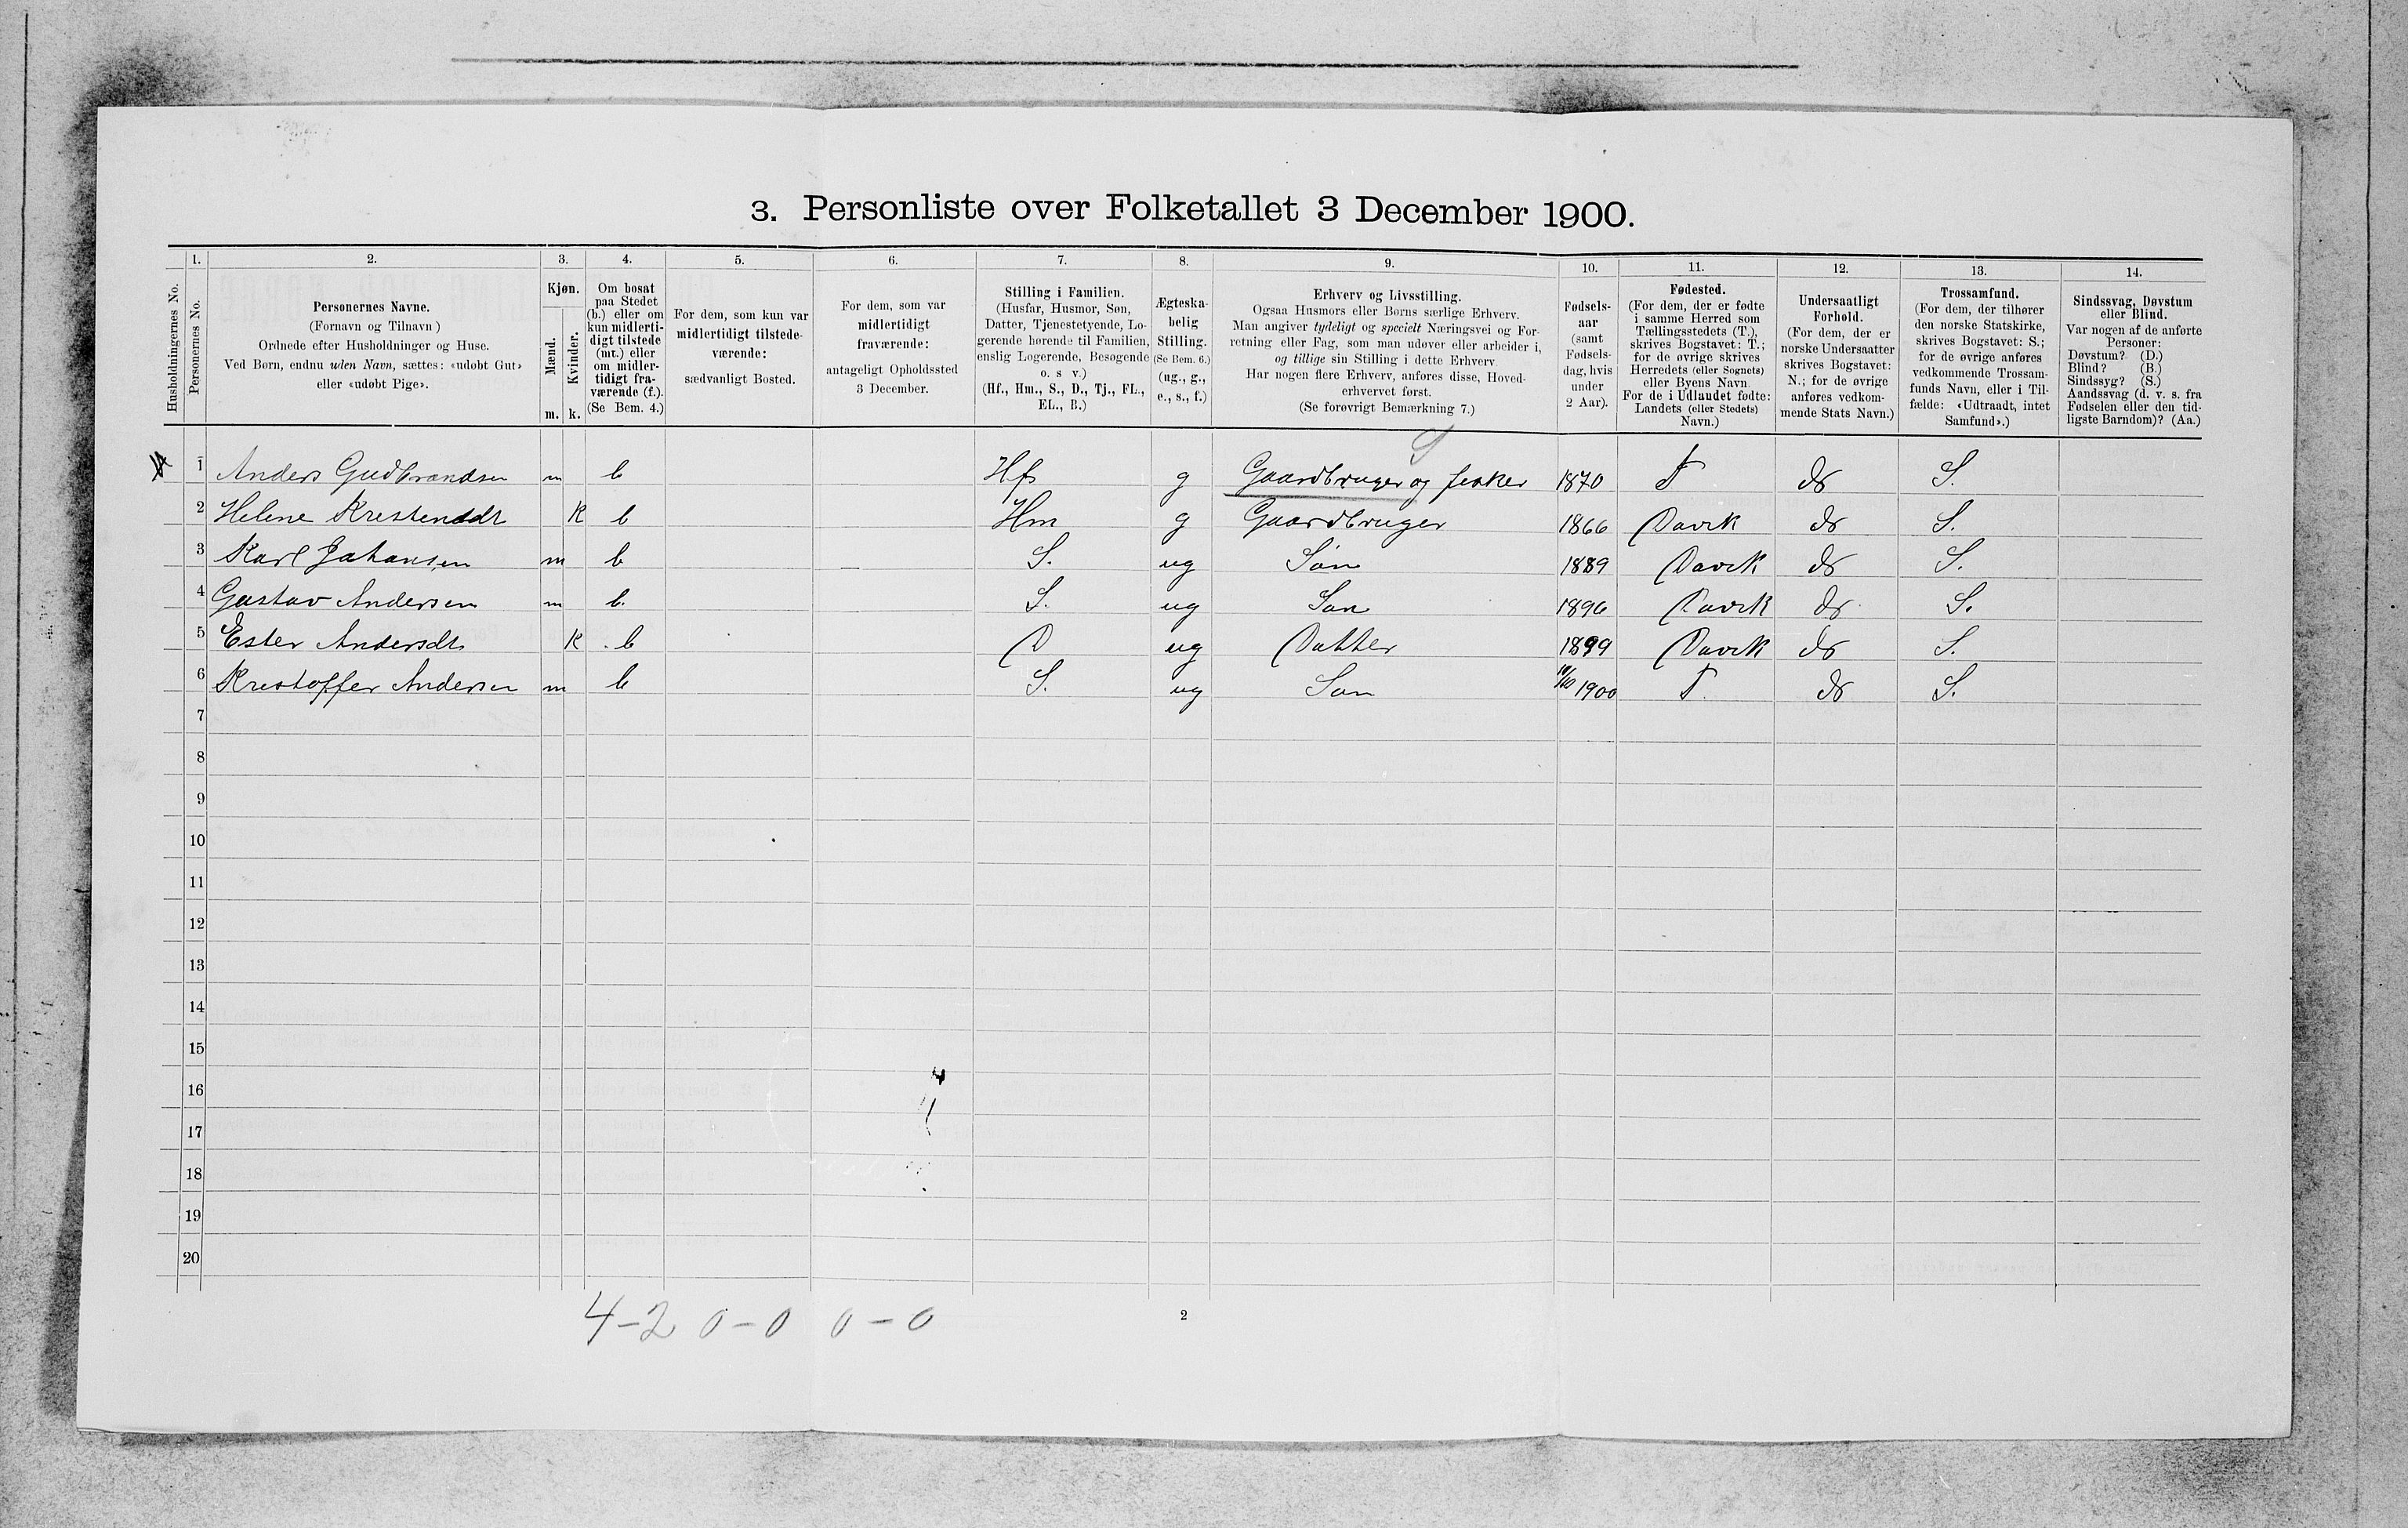 3. Personliste over Folketallet 3 December 1900.
1. 2. 3. 4. 5. 6. 7. 8. 9. 10. 11. 12. 13. 14.
Husholdningernes No.
Personernes No.
Personernes Navne.
(Fornavn og Tilnavn)
Ordnede efter Husholdninger og Huse.
Ved Børn, endnu uden Navn, sættes: «udøbt Gut»
eller «udøbt Pige».
Kjøn.
Mænd.
Kvinder.
m. k.
Om bosat
paa Stedet
(b.) eller om
kun midlerti-
digt tilstede
(mt.) eller
om midler-
tidigt fra-
værende (f.).
(Se Bem. 4.)
For dem, som kun var
midlertidigt tilstede-
værende:
sædvanligt Bosted.
For dem, som var
midlertidigt
fraværende:
antageligt Opholdssted
3 December.
Stilling i Familien.
(Husfar, Husmor, Søn,
Datter, Tjenestetyende, Lo-
gerende hørende til Familien,
enslig Logerende, Besøgende
o. s v.)
(Hf., Hm., S., D., Tj., FL.,
EL., B.)
Ægteska-
belig
Stilling.
(Se Bem. 6.)
(ug., g.,
e., s., f.)
Erhverv og Livsstilling.
Ogsaa Husmors eller Børns særlige Erhverv.
Man angiver tydeligt og specielt Næringsvei og For-
retning eller Fag, som man udøver eller arbeider i,
og tillige sin Stilling i dette Erhverv.
Har nogen flere Erhverv, anføres disse, Hoved-
erhvervet først.
(Se forøvrigt Bemærkning 7.)
Fødsels-
aar
(samt
Fødsels-
dag, hvis
under
2 Aar).
Fødested.
(For dem, der er fødte
i samme Herred som
Tællingsstedets (T.),
skrives Bogstavet: T.;
for de øvrige skrives
Herredets (eller Sognets)
eller Byens Navn
For de i Udlandet fødte:
Landets (eller Stedets)
Navn.)
Undersaatligt
Forhold.
(For dem, der er
norske Undersaatter
skrives Bogstavet:
N.; for de øvrige
anføres vedkom-
mende Stats Navn.)
Trossamfund.
(For dem, der tilhører
den norske Statskirke,
skrives Bogstavet: S.;
for de øvrige anføres
vedkommende Trossam-
funds Navn, eller i Til-
fælde: «Udtraadt, intet
Samfund».)
Sindssvag, Døvstum
eller Blind.
Var nogen af de anførte
Personer:
Døvstum? (D.)
Blind? (B.)
Sindssyg? (S.)
Aandssvag (d. v. s. fra
Fødselen eller den tid-
ligste Barndom)? (Aa.)
1 Anders Gudbrandsen m b Hf g Gaardbruger og fisker 1870 T N S.
2 Helene Kristensdt K b Hm g Gaardbruger 1866 Davik N S.
3 Karl Johansen m b S. ug Søn 1889 Davik N S.
4 Gustav Andersen m b. S. ug Søn 1896 Davik N S.
5 Ester Andersdt K b D ug Datter 1899 Davik N S.
6 Kristoffer Andersen m b S. ug Søn 1900 T. N S.
7
8
9
10
11
12
13
14
15
16
17
18
19
20
4-2 0-0 0-0
2